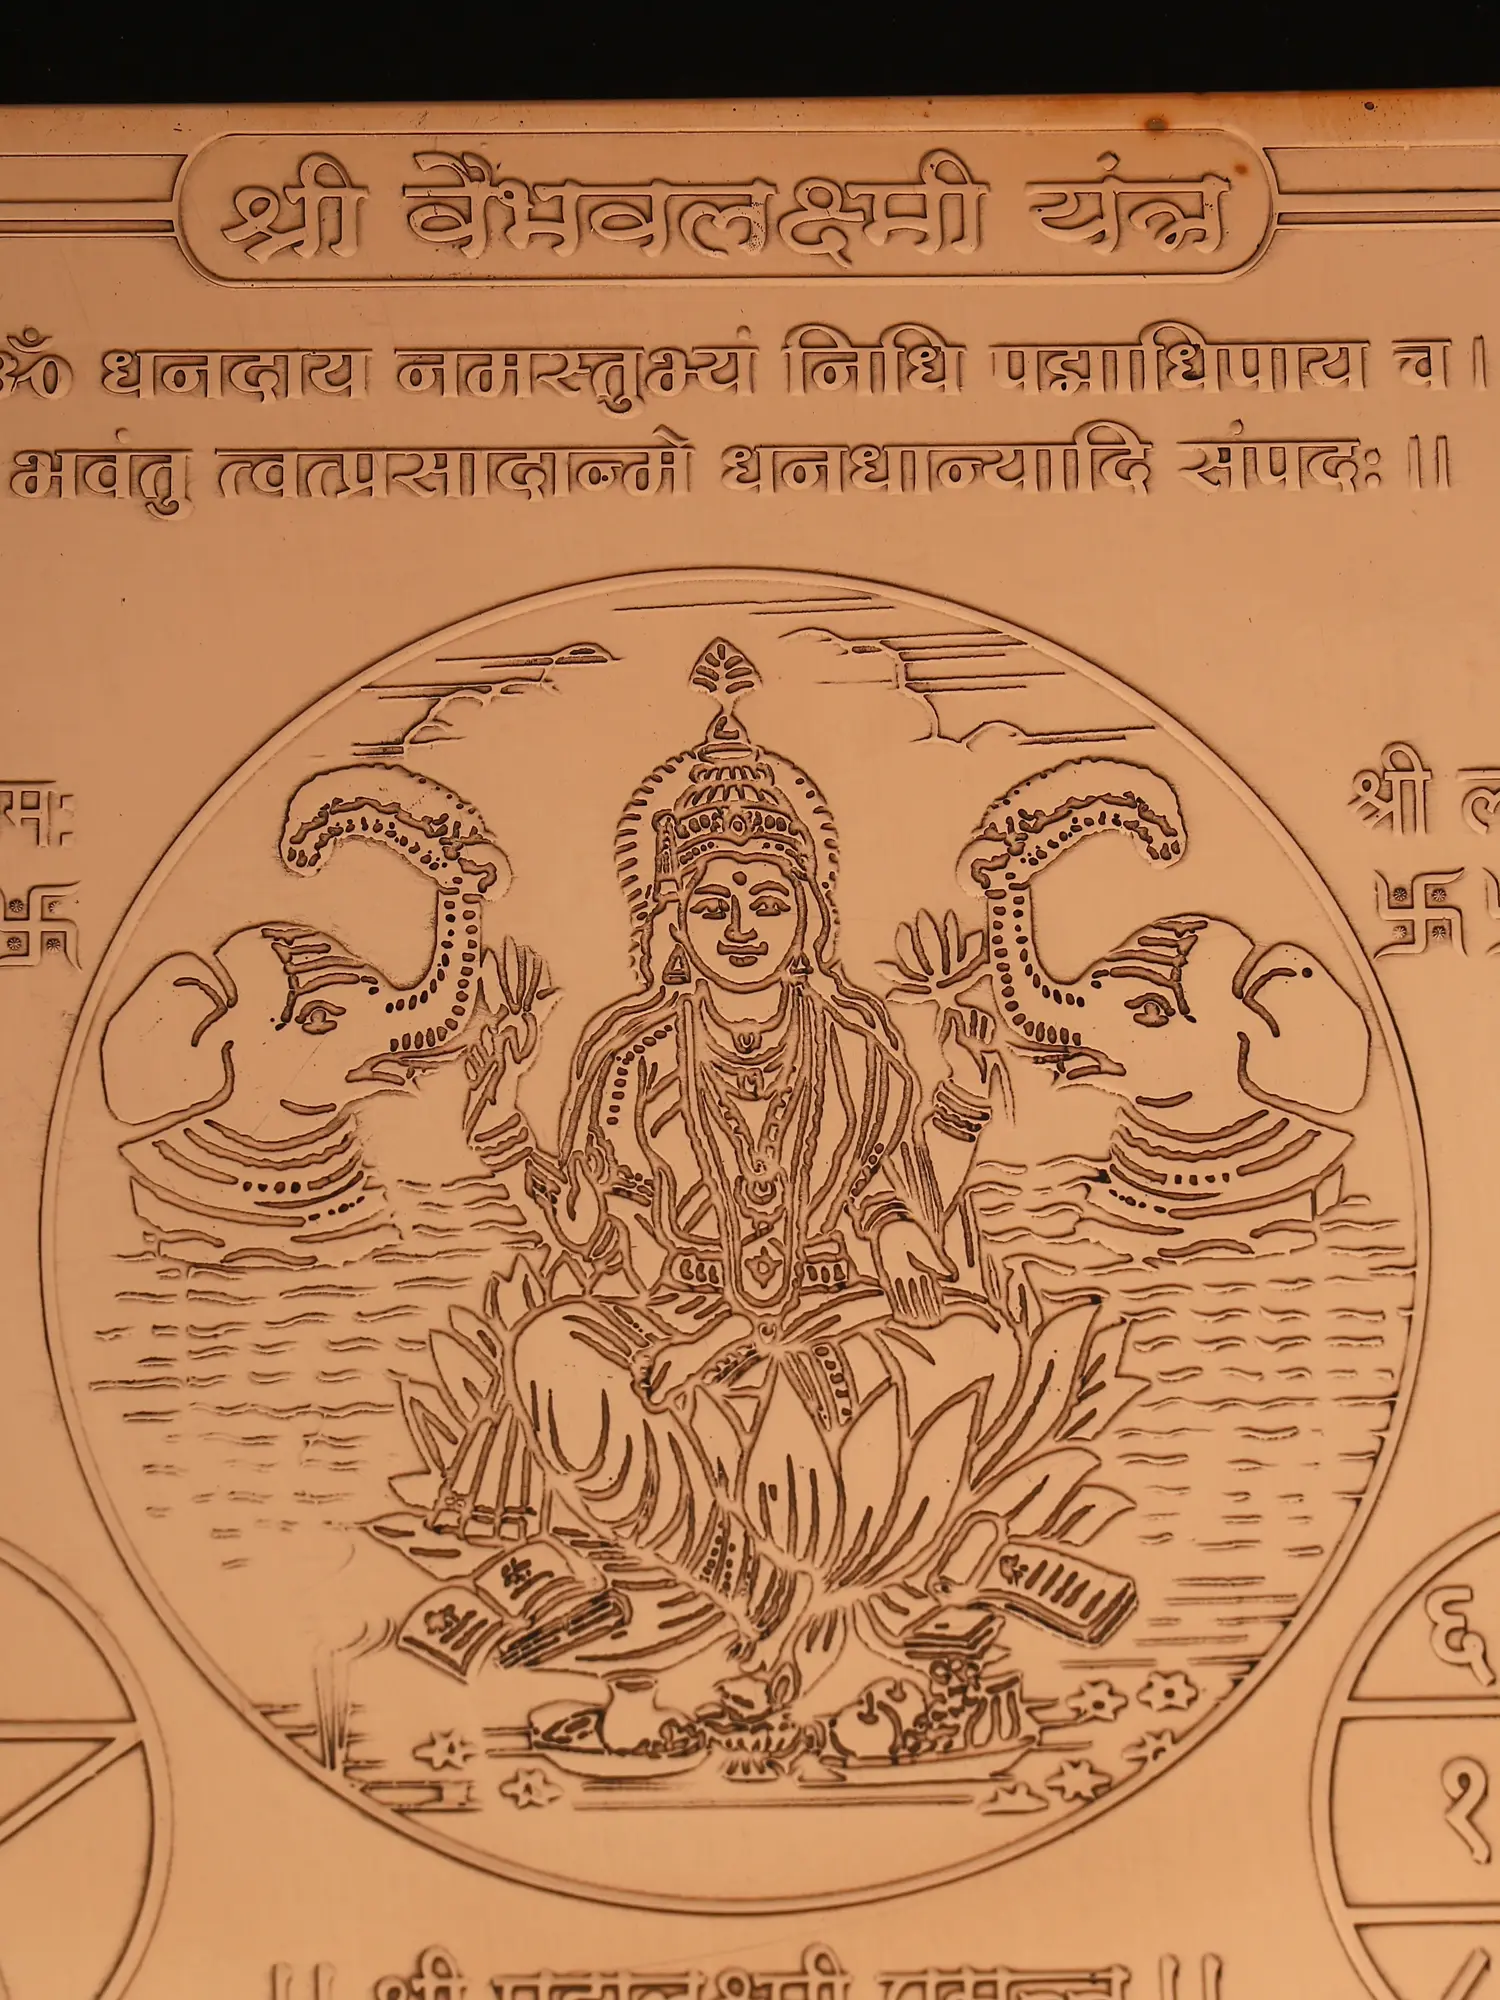 श्री वैभवलक्ष्मी यंत्र
ॐ धनदाय नमस्तुभ्यं निधि पद्माधिपाय च।
भवंतु त्वत्प्रसादान्मे धनधान्यादि संपदः॥
श्री
६
१
॥ श्री